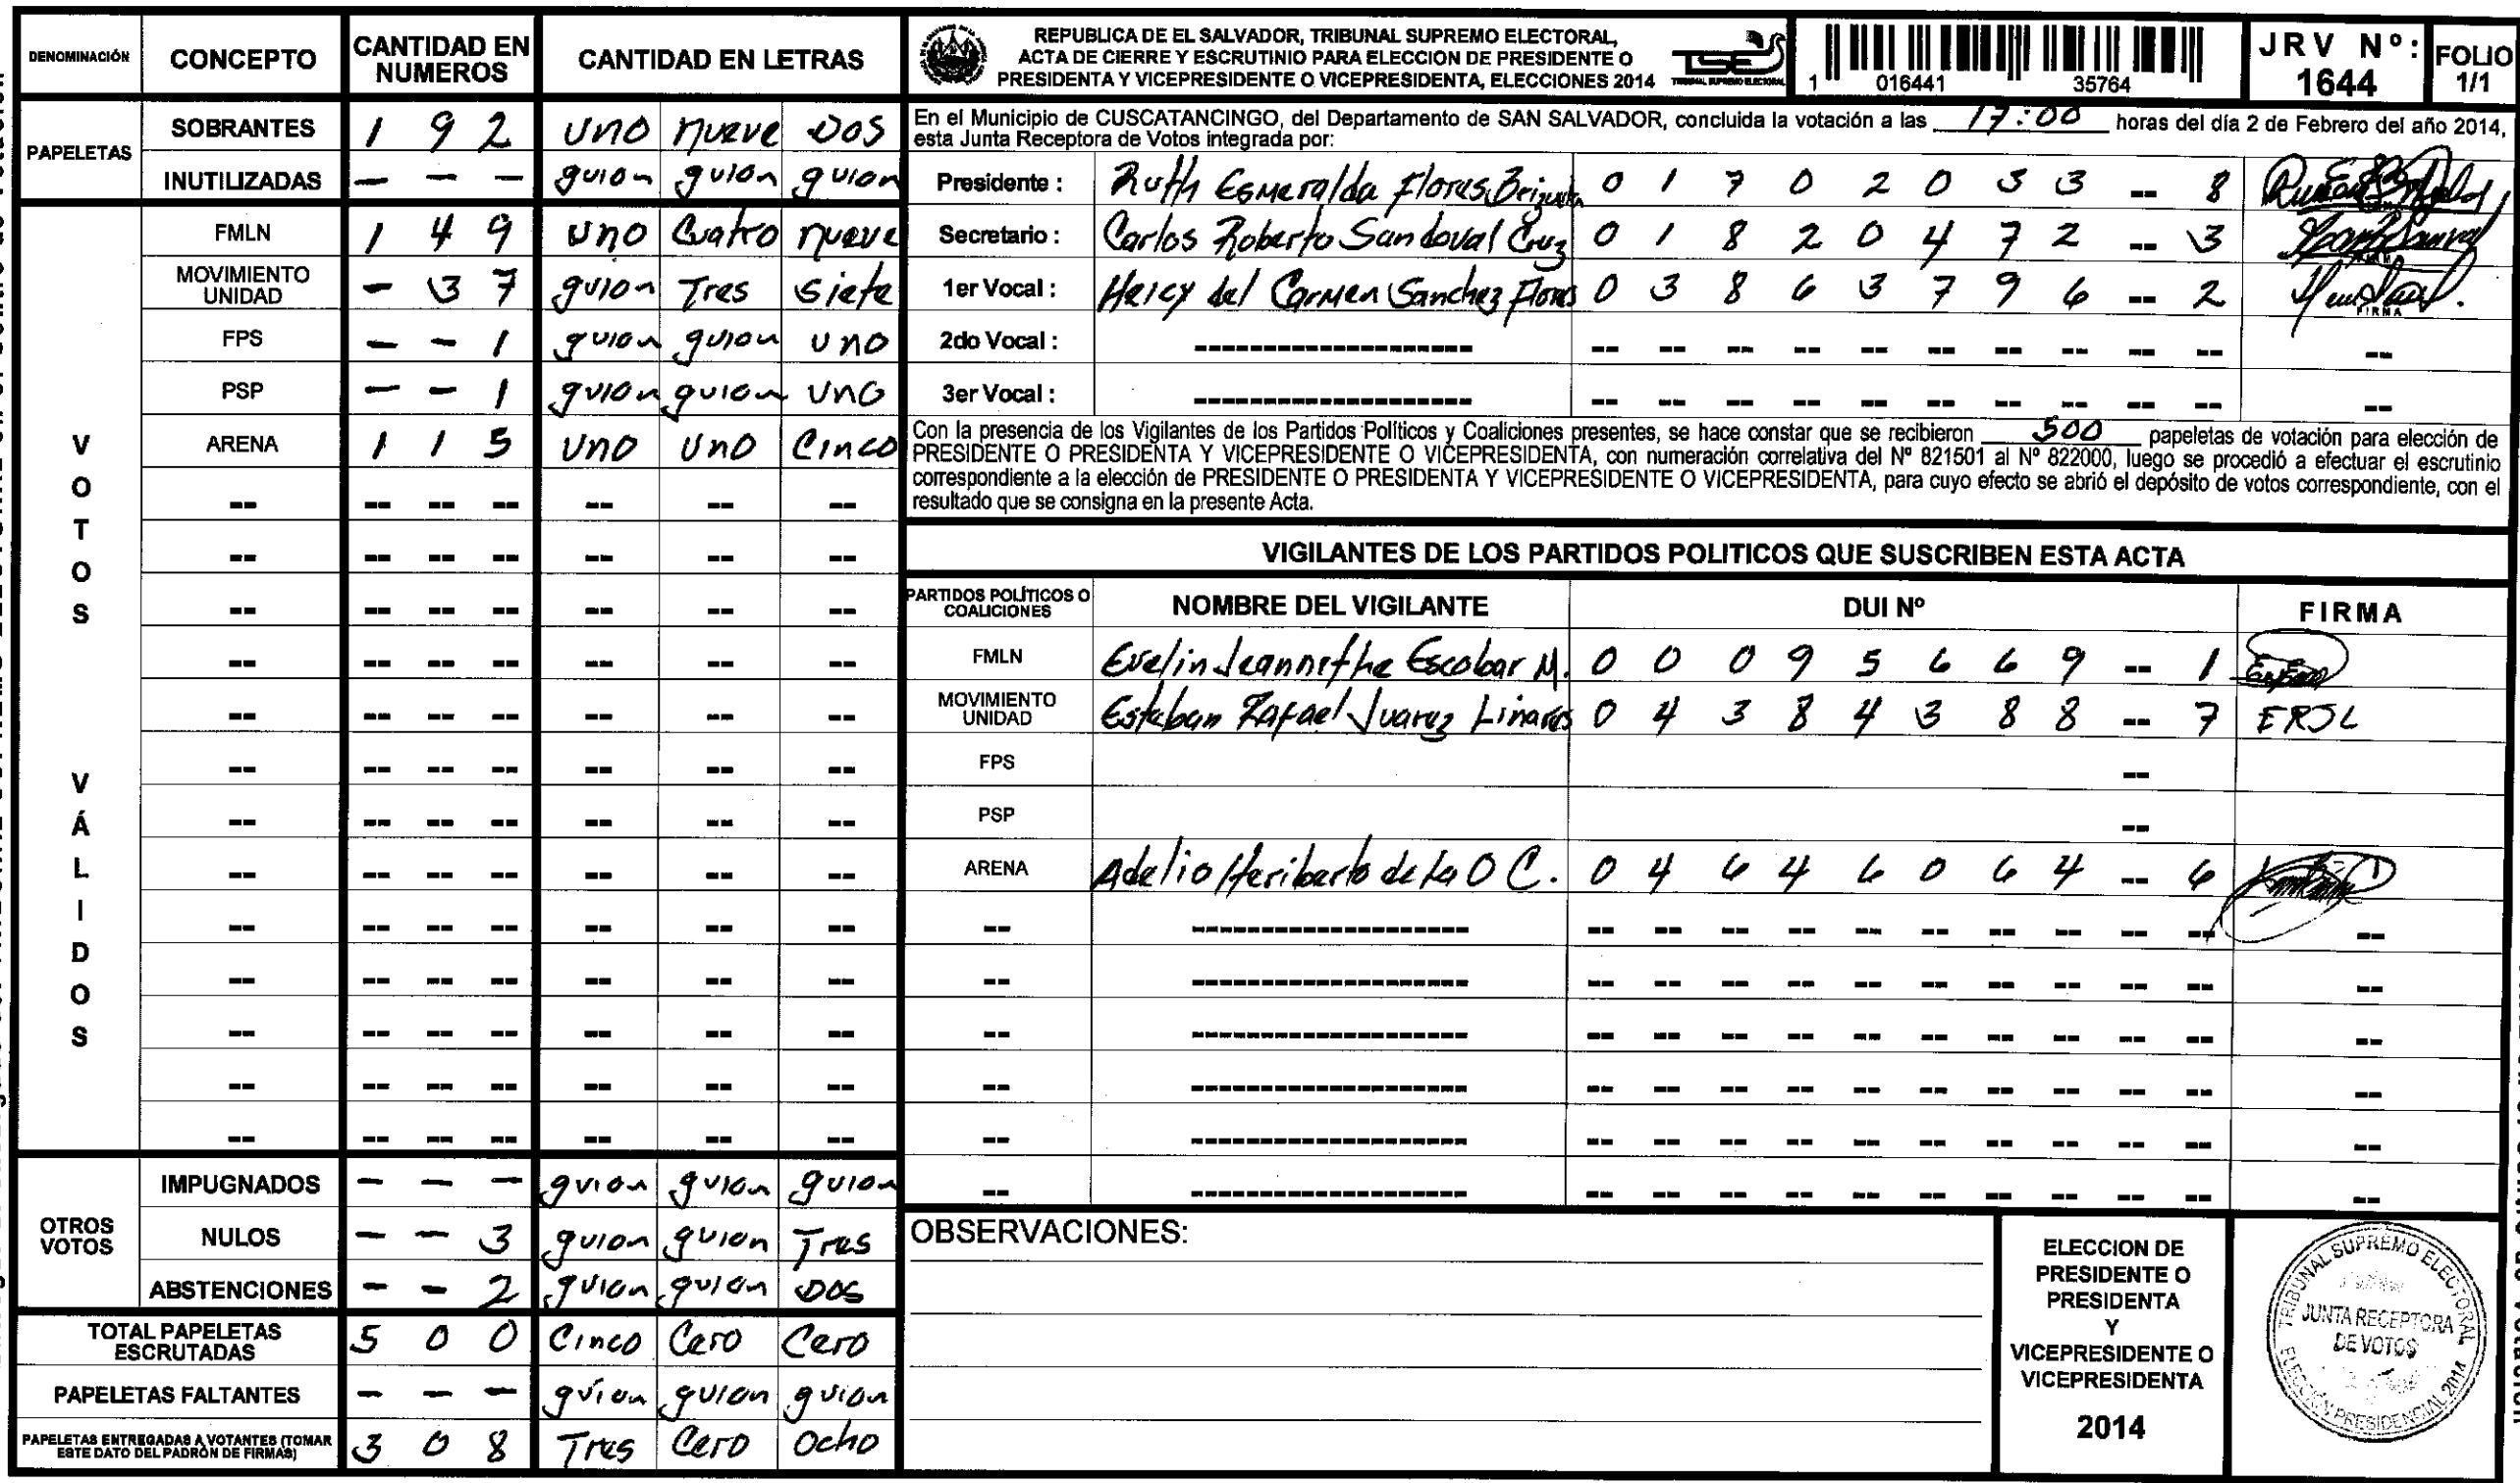 DENOMINACIÓN CONCEPTO CANTIDAD EN NUMEROS CANTIDAD EN LETRAS
PAPELETAS
SOBRANTES 1 9 2 uno nueve DOS
INUTILIZADAS — — — guion guion guion
VOTOS VÁLIDOS
FMLN 1 4 9 uno Cuatro nueve
MOVIMIENTO UNIDAD - 3 7 guion Tres siete
FPS - - 1 guion guion uno
PSP - - 1 guion guion uno
ARENA 1 1 5 uno uno Cinco
-- -- -- -- -- -- --
-- -- -- -- -- -- --
-- -- -- -- -- -- --
-- -- -- -- -- -- --
-- -- -- -- -- -- --
-- -- -- -- -- -- --
-- -- -- -- -- -- --
-- -- -- -- -- -- --
-- -- -- -- -- -- --
-- -- -- -- -- -- --
-- -- -- -- -- -- --
-- -- -- -- -- -- --
-- -- -- -- -- -- --
OTROS VOTOS
IMPUGNADOS - - - guion guion guion
NULOS - - 3 guion guion Tres
ABSTENCIONES - - 2 guion guion DOS
TOTAL PAPELETAS ESCRUTADAS 5 0 0 Cinco Cero Cero
PAPELETAS FALTANTES - - - guion guion guion
PAPELETAS ENTREGADAS A VOTANTES (TOMAR ESTE DATO DEL PADRÓN DE FIRMAS) 3 0 8 Tres Cero Ocho
REPUBLICA DE EL SALVADOR, TRIBUNAL SUPREMO ELECTORAL,
ACTA DE CIERRE Y ESCRUTINIO PARA ELECCION DE PRESIDENTE O
PRESIDENTA Y VICEPRESIDENTE O VICEPRESIDENTA, ELECCIONES 2014
TSE
TRIBUNAL SUPREMO ELECTORAL
1 016441 35764
JRV Nº: 1644
FOLIO 1/1
En el Municipio de CUSCATANCINGO, del Departamento de SAN SALVADOR, concluida la votación a las 17:00 horas del día 2 de Febrero del año 2014,
esta Junta Receptora de Votos integrada por:
Presidente : Ruth Esmeralda Flores 0 1 7 0 2 0 3 3 -- 8
Secretario : Carlos Roberto Sandoval Cruz 0 1 8 2 0 4 7 2 -- 3
1er Vocal : Heicy del Carmen Sanchez Flores 0 3 8 6 3 7 9 6 -- 2 FIRMA
2do Vocal : ------------------- -- -- -- -- -- -- -- -- -- -- --
3er Vocal : ------------------- -- -- -- -- -- -- -- -- -- -- --
Con la presencia de los Vigilantes de los Partidos Políticos y Coaliciones presentes, se hace constar que se recibieron 500 papeletas de votación para elección de
PRESIDENTE O PRESIDENTA Y VICEPRESIDENTE O VICEPRESIDENTA, con numeración correlativa del Nº 821501 al Nº 822000, luego se procedió a efectuar el escrutinio
correspondiente a la elección de PRESIDENTE O PRESIDENTA Y VICEPRESIDENTE O VICEPRESIDENTA, para cuyo efecto se abrió el depósito de votos correspondiente, con el
resultado que se consigna en la presente Acta.
VIGILANTES DE LOS PARTIDOS POLITICOS QUE SUSCRIBEN ESTA ACTA
PARTIDOS POLÍTICOS O COALICIONES NOMBRE DEL VIGILANTE DUI Nº FIRMA
FMLN Evelin Jeannethe Escobar M. 0 0 0 9 5 6 6 9 -- 1
MOVIMIENTO UNIDAD Esteban Rafael Juarez Linares 0 4 3 8 4 3 8 8 -- 7 ERJL
FPS --
PSP --
ARENA Adelio Heriberto de la O C. 0 4 6 4 6 0 6 4 -- 6
-- ------------------- -- -- -- -- -- -- -- -- -- -- --
-- ------------------- -- -- -- -- -- -- -- -- -- -- --
-- ------------------- -- -- -- -- -- -- -- -- -- -- --
-- ------------------- -- -- -- -- -- -- -- -- -- -- --
-- ------------------- -- -- -- -- -- -- -- -- -- -- --
-- ------------------- -- -- -- -- -- -- -- -- -- -- --
OBSERVACIONES:
ELECCION DE
PRESIDENTE O
PRESIDENTA
Y
VICEPRESIDENTE O
VICEPRESIDENTA
2014
TRIBUNAL SUPREMO ELECTORAL
JUNTA RECEPTORA
DE VOTOS
ELECCIÓN PRESIDENCIAL 2014